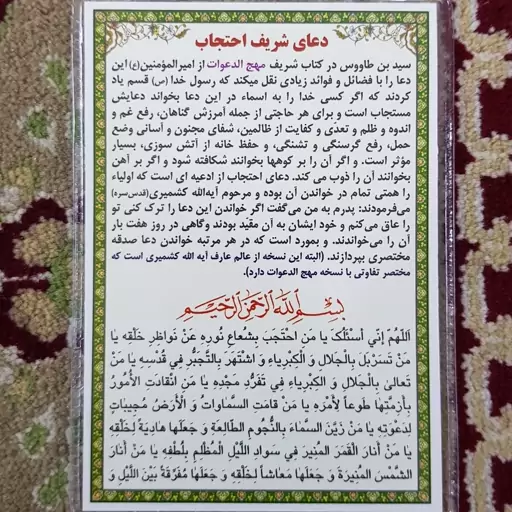 دعای شریف احتجاب
سید بن طاووس در کتاب شریف مهج الدعوات از امیرالمؤمنین(ع) این
دعا را با فضائل و فوائد زیادی نقل میکند که رسول خدا (ص) قسم یاد
کردند که اگر کسی خدا را به اسماء در این دعا بخواند دعایش
مستجاب است و برای هر حاجتی از جمله آمرزش گناهان، رفع غم و
اندوه و ظلم و تعدّی و کفایت از ظالمین، شفای مجنون و آسانی وضع
حمل، رفع گرسنگی و تشنگی، و حفظ خانه از آتش سوزی، بسیار
مؤثر است. و اگر آن را بر کوهها بخوانند شکافته شود و اگر بر آهن
بخوانند آن را ذوب می کند. دعای احتجاب از ادعیه ای است که اولیاء
را همتی تمام در خواندن آن بوده و مرحوم آیه‌الله کشمیری(قدس‌سره)
می‌فرمودند: پدرم به من می‌گفت اگر خواندن این دعا را ترک کنی تو
را عاق می‌کنم و خود ایشان به آن مقید بودند وگاهی در روز هفت بار
آن را می‌خواندند. و بمورد است که در هر مرتبه خواندن دعا صدقه
مختصری بپردازند. (البته این نسخه از عالم عارف آیه الله کشمیری است که
مختصر تفاوتی با نسخه مهج الدعوات دارد).
بسم الله الرحمن الرحیم
اَللّهُمَّ اِنّی اَسئَلُکَ یا مَنِ احْتَجَبَ بِشُعاعِ نُورِهِ عَنْ نَواظِرِ خَلْقِهِ یا
مَنْ تَسَرْبَلَ بِالْجَلالِ وَ الْکِبْرِیاءِ وَ اشْتَهَرَ بِالتَّجَبُّرِ فی قُدْسِهِ یا مَنْ
تَعالی بِالْجَلالِ وَ الْکِبْرِیاءِ فی تَفَرُّدِ مَجْدِهِ یا مَنِ انْقادَتِ الْاُمُورُ
بِاَزِمَّتِها طَوْعاً لِاَمْرِهِ یا مَنْ قامَتِ السَّماواتُ وَ الْاَرْضُ مُجیباتٍ
لِدَعْوَتِهِ یا مَنْ زَیَّنَ السَّماءَ بِالنُّجُومِ الطّالِعَةِ وَ جَعَلَها هادِیَةً لِخَلْقِهِ
یا مَنْ اَنارَ الْقَمَرَ الْمُنیرَ فی سَوادِ اللَّیْلِ الْمُظْلِمِ بِلُطْفِهِ یا مَنْ اَنارَ
الشَّمْسَ الْمُنیرَةَ وَ جَعَلَها مَعاشاً لِخَلْقِهِ وَ جَعَلَها مُفَرِّقَةً بَیْنَ اللَّیْلِ وَ